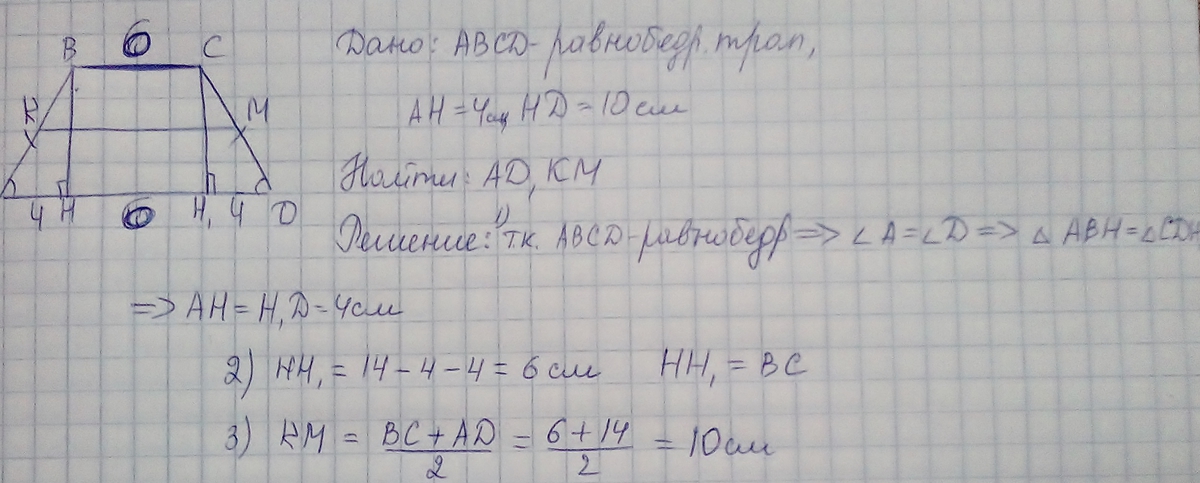 B 6 C
Дано: ABCD-равнобедр. трап,
K M
AH = 4см HD = 10 см
Найти: AD, KM
4 H 6 H₁ 4 D
Решение: 1) т.к. ABCD-равнобедр => ∠A = ∠D => △ ABH = △CDH
=> AH = H₁D = 4 см
2) HH₁ = 14 - 4 - 4 = 6 см HH₁ = BC
3) KM = BC + AD / 2 = 6 + 14 / 2 = 10 см